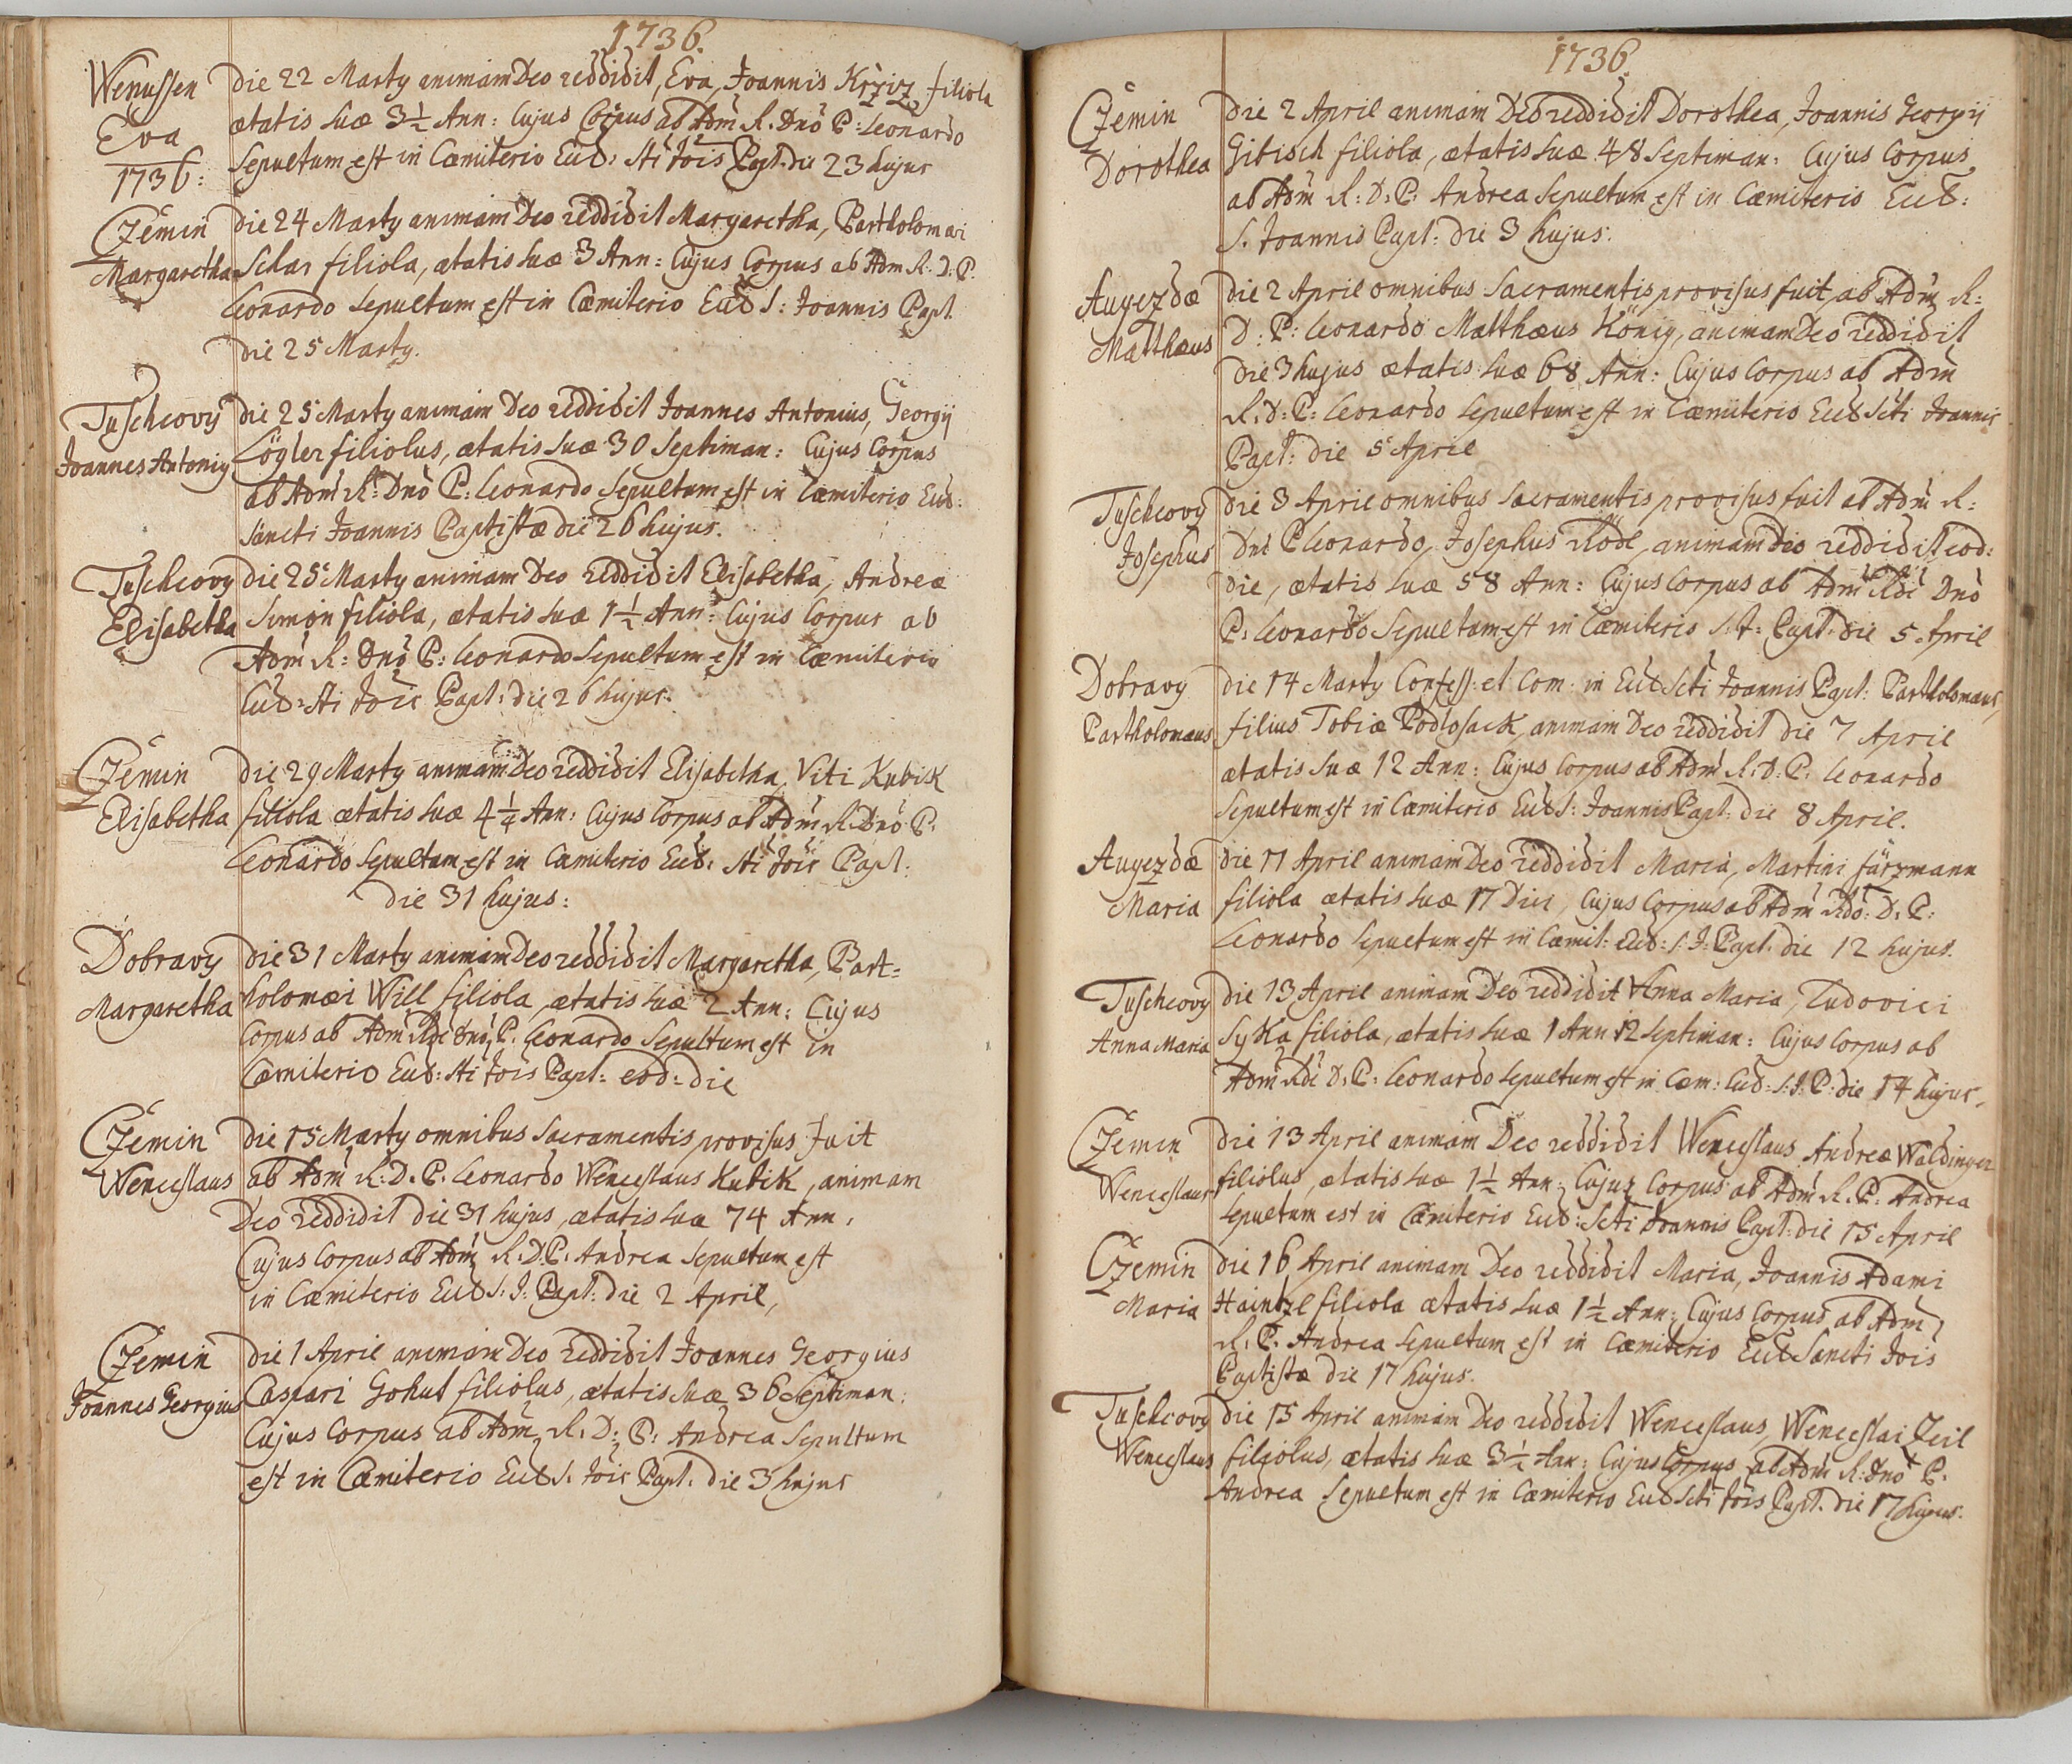 1736.
Wenussen
Eva
1736:
Die 22 Marty animam Deo reddidit, Eva, Joannis Krziz filiola
ætatis suæ 3½ Ann: Cujus Corpus ab Adm R. Dno P: Leonardo
sepultum est in Cæmiterio Eccl: Sti Jois Bapt. die 23 hujus
Czemin
Margaretha
Die 24 Marty animam Deo reddidit Margaretha, Bartholomæi
Schar filiola, ætatis suæ 3 Ann: Cujus Corpus ab Adm R. D. P.
Leonardo sepultum est in Cæmiterio Eccl S: Joannis Bapt.
die 25 Marty.
Tuschcovy
Joannes Antoniy
Die 25 Marty animam Deo reddidit Joannes Antonius, Georgij
Lögler filiolus, ætatis suæ 30 Septiman: Cujus Corpus
ab Adm R: Dno P: Leonardo sepultum est in Cæmiterio Eccl:
Sancti Joannis Baptistæ die 26 hujus.
Tuschcovy
Elisabetha
Die 25 Marty animam Deo reddidit Elisabetha, Andreæ
Simon filiola, ætatis suæ 1½ Ann: Cujus Corpus ab
Adm R: Dno P: Leonardo sepultum est in Cæmiterio
Eccl: Sti Jois Bapt: die 26 hujus.
Czemin
Elisabetha
Die 29 Marty animam Deo reddidit Elisabetha, Viti Kubik
filiola ætatis suæ 4¼ Ann: Cujus Corpus ab Adm R. Dno P.
Leonardo sepultum est in Cæmiterio Eccl: Sti Jois Bapt:
die 31 hujus:
Dobravy
Margaretha
Die 31 Marty animam Deo reddidit Margaretha, Bart=
holomæi Will filiola, ætatis suæ 2 Ann: Cujus
Corpus ab Adm Rdi Dno P. Leonardo sepultum est in
Cæmiterio Eccl: Sti Jois Bapt: eod: die
Czemin
Wenceslaus
Die 15 Marty omnibus Sacramentis provisus fuit
ab Adm R: D. P. Leonardo Wenceslaus Kubik, animam
Deo reddidit die 31 hujus, ætatis suæ 74 Ann.
Cujus Corpus ab Adm R: D. P: Andrea sepultum est
in Cæmiterio Eccl S: J: Bapt: die 2 April,
Czemin
Joannes Georgius
Die 1 April animam Deo reddidit Joannes Georgius
Caspari Gohut filiolus, ætatis suæ 36 Septiman:
Cujus Corpus ab Adm R: D: P: Andrea sepultum
est in Cæmiterio Eccl S. Jois Bapt. die 3 hujus
1736.
Czemin
Dorothea
Die 2 April animam Deo reddidit Dorothea, Joannis Georgij
Gibisch filiola, ætatis suæ 48 Septiman: Cujus Corpus
ab Adm R: D. P. Andrea sepultum est in Cæmiterio Eccl:
S. Joannis Bapt: die 3 hujus.
Augezdæ
Matthæus
Die 2 April omnibus Sacramentis provisus fuit, ab Adm R:
D: P: Leonardo Matthæus König, animam Deo reddidit
die 3 hujus ætatis suæ 68 Ann: Cujus Corpus ab Adm
R: D: P: Leonardo sepultum est in Cæmiterio Eccl Scti Joannis
Bapt: die 5 April
Tuschcovy
Josephus
Die 3 April omnibus Sacramentis provisus fuit ab Adm R:
Dni P Leonardo, Josephus Rödl, animam Deo reddidit eod:
die, ætatis suæ 58 Ann: Cujus Corpus ab Adm Rdi Dno
P: Leonardo sepultum est in Cæmiterio S: J: Bapt: die 5. April
Dobravy
Bartholomæus
Die 14 Marty Confess: et Com: in Eccl Scti Joannis Bapt: Bartholomæus,
filius Tobiæ Podlosack, animam Deo reddidit die 7 April
ætatis suæ 12 Ann: Cujus Corpus ab Adm R: D: P: Leonardo
sepultum est in Cæmiterio Eccl S: Joannis Bapt: die 8 April.
Augezdæ
Maria
Die 11 April animam Deo reddidit Maria, Martini Fürzmann
filiola ætatis suæ 17 Dies, Cujus Corpus ab Adm Rdo: D. P:
Leonardo sepultum est in Cæmit: Eccl: S: J: Bapt. die 12 hujus.
Tuschcovy
Anna Maria
Die 13 April animam Deo reddidit Anna Maria, Ludovici
Syka filiola, ætatis suæ 1 Ann 12 Septiman: Cujus Corpus ab
Adm Rdi D. P: Leonardo sepultum est in Cæm: Eccl: S: J: B: die 14 hujus.
Czemin
Wenceslaus
Die 13 April animam Deo reddidit Wenceslaus Andreæ Waldinger
filiolus, ætatis suæ 1½ Ann: Cujus Corpus ab Adm R. P: Andrea
sepultum est in Cæmiterio Eccl: Scti Joannis Bapt: die 15 April
Czemin
Maria
Die 16 April animam Deo reddidit Maria, Joannis Adami
Haintzl filiola ætatis suæ 1½ Ann: Cujus Corpus ab Adm
R. P. Andrea sepultum est in Cæmiterio Eccl Sancti Jois
Baptistæ die 17 hujus.
Tuschcovy
Wenceslaus
Die 15 April animam Deo reddidit Wenceslaus, Wenceslai Zeil
filiolus, ætatis suæ 3½ Ann: Cujus Corpus ab Adm R: Dno P.
Andrea sepultum est in Cæmiterio Eccl Scti Jois Bapt. die 17 hujus.